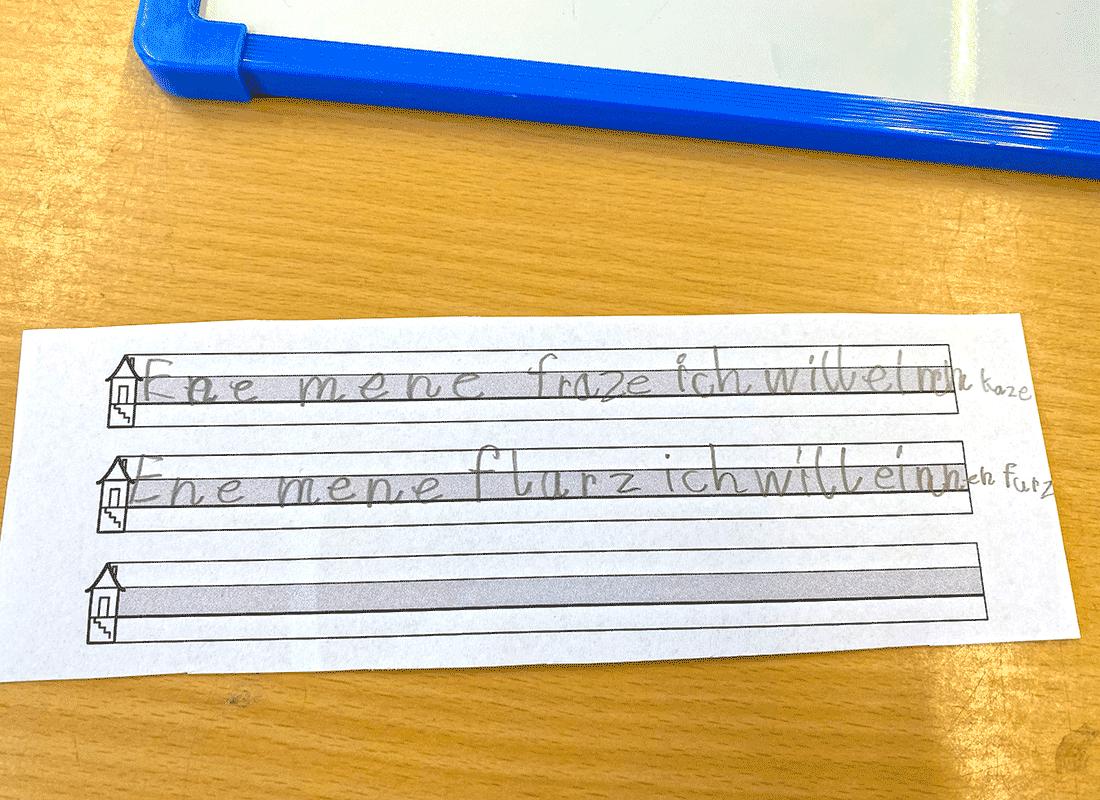 Ene mene fraze ich will einen kaze
Ene mene flurz ich will einnen furz